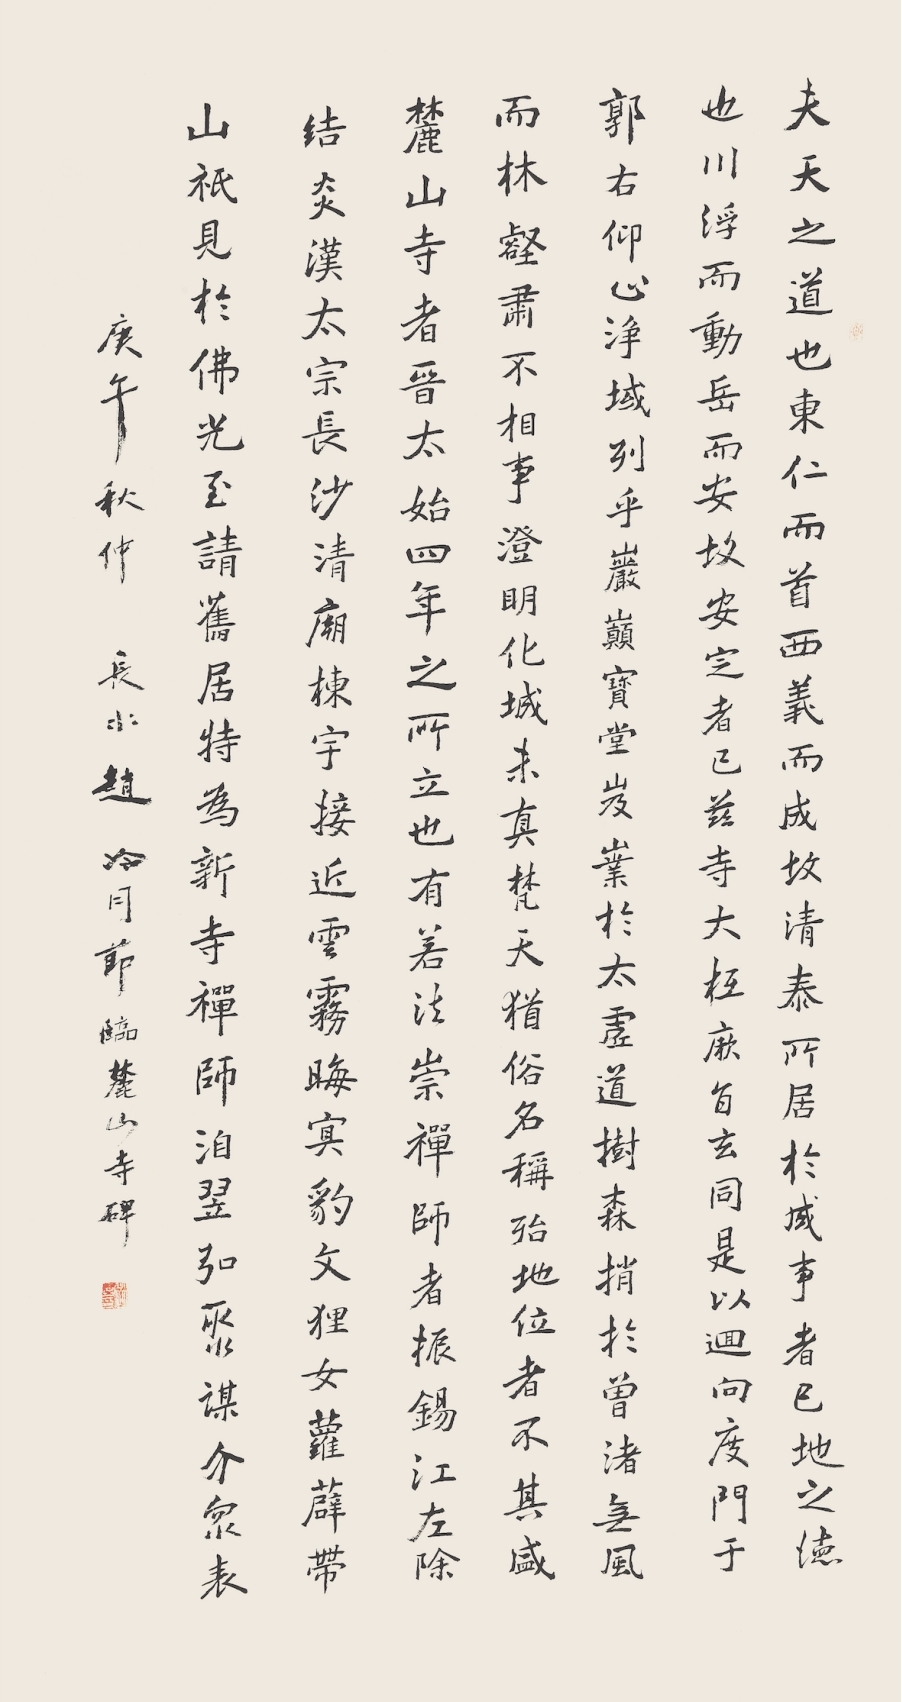 夫天之道也東仁而首西義而成故清泰所居於咸事者已地之德
也川浮而動岳而安故安定者已茲寺大抵厥旨玄同是以迴向度門于
郭右仰止淨域列乎巖巔寶堂岌嶪於太虛道樹森捎於曾渚無風
而林壑肅不相事澄明化城未真梵天猶俗名稱殆地位者不其盛
麓山寺者晉太始四年之所立也有若法崇禪師者振錫江左除
结炎漢太宗長沙清廟棟宇接近雲霧晦冥豹文狸女蘿薜帶
山祇見於佛光至請舊居特為新寺禪師洎翌弘聚謀介眾表
庚午秋仲 長水趙冷月節臨麓山寺碑